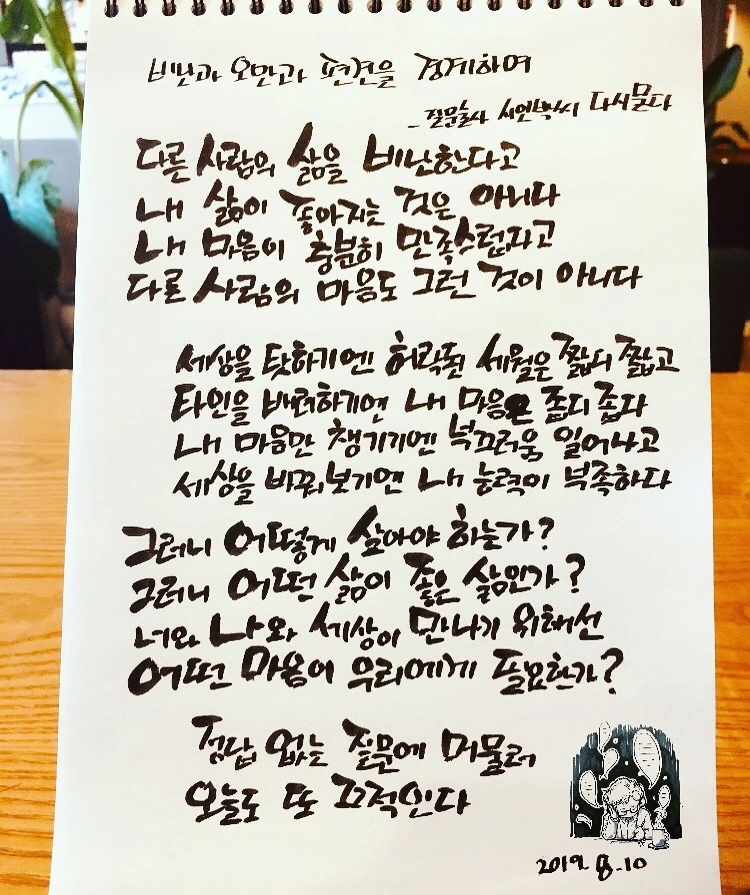 비난과 오만과 편견을 경계하며
- 질문술사 시인박씨 다시묻다
다른 사람의 삶을 비난한다고
내 삶이 좋아지는 것은 아니다
내 마음이 충분히 만족스럽다고
다른 사람의 마음도 그런 것이 아니다
세상을 탓하기엔 허락된 세월은 짧디 짧고
타인을 배려하기엔 내 마음은 좁디 좁다
내 마음만 챙기기엔 부끄러움 일어나고
세상을 바꿔보기엔 내 능력이 부족하다
그러니 어떻게 살아야 하는가?
그러니 어떤 삶이 좋은 삶인가?
너와 나와 세상이 만나기 위해선
어떤 마음이 우리에게 필요한가?
정답 없는 질문에 머물러
오늘도 또 끄적인다
2019. 8. 10